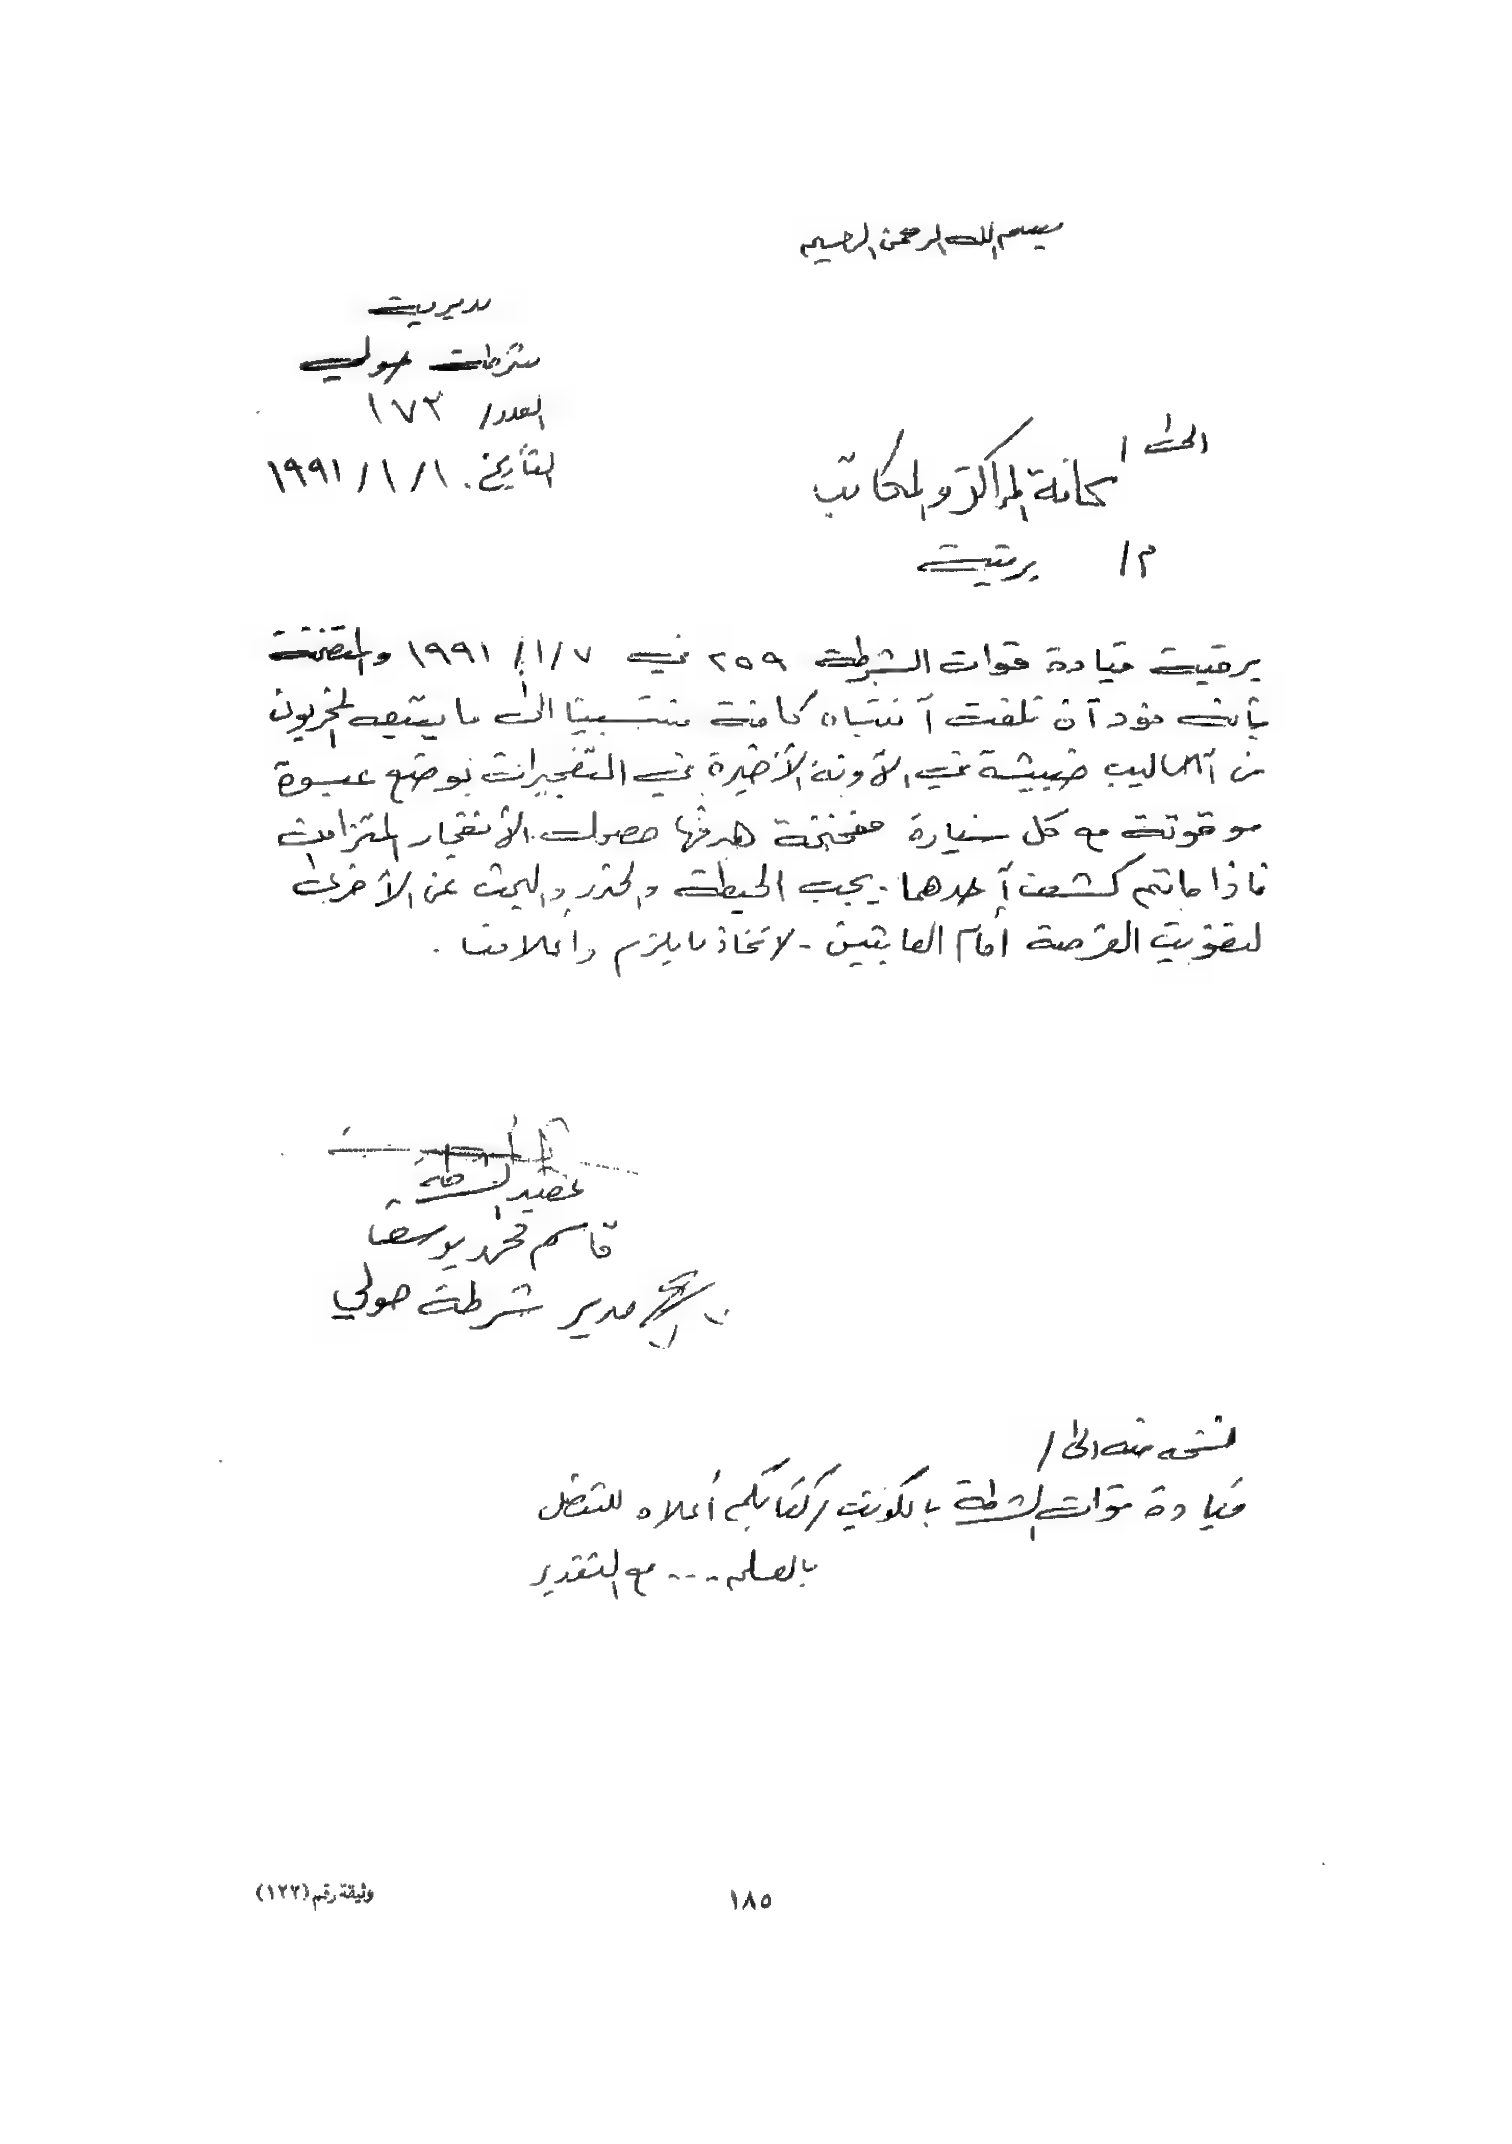 بسم الله الرحمن الرحيم
مديرية
شرطة حولي
العدد/ ١٧٢
التأريخ. ١/١/١٩٩١
الى /
كافة المراكز والمكاتب
م/ برقية
برقية قيادة قوات الشرطة ٢٥٩ في ١/٧/ ١٩٩١ والمتضمنة
بأنه نود أن نلفت أنتباه كافة منتسبينا الى ما يتبعه المخربون
من أساليب خبيثة في الآونة الأخيرة في التفجيرات بوضع عبوة
موقوتة مع كل سيارة مفخخة هدفها حصول الأنفجار المتزامن
فاذا ماتم كشف أحدهما. يجب الحيطة والحذر والبحث عن الأخرى
لتفويت الفرصة أمام العابثين - لاتخاذ مايلزم وأعلامنا .
عقيد الشرطة
قاسم محمد يوسف
مدير شرطة حولي
نسخه منه الى /
قيادة قوات الشرطة بالكويت / كتابكم أعلاه للتفضل
بالعلم ... مع التقدير
١٨٥
وثيقة رقم (١٢٢)